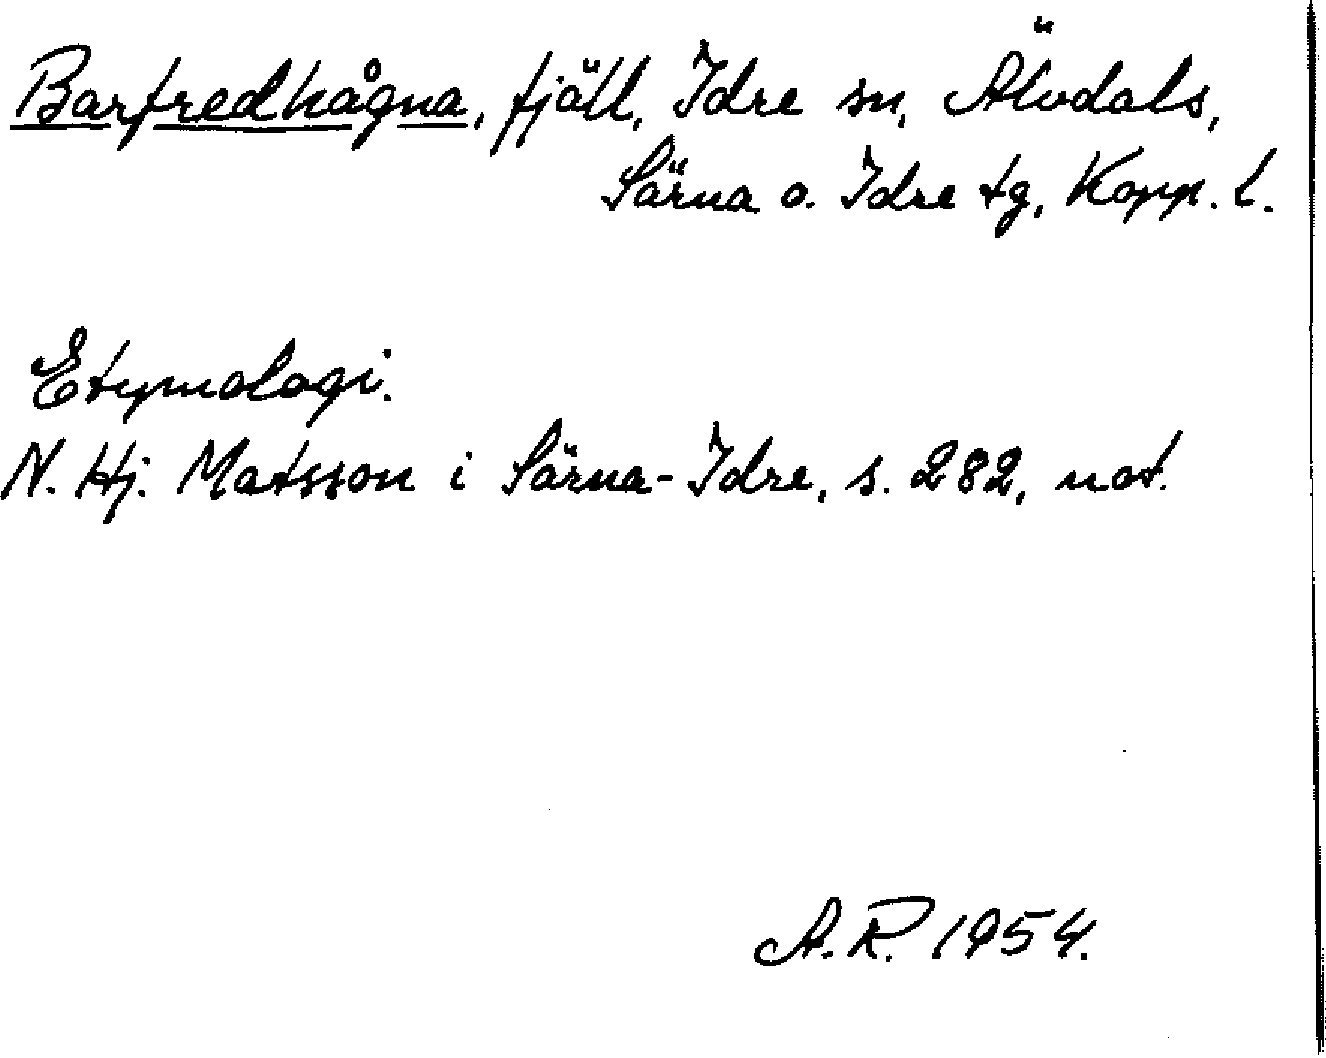 Barfredhågna, fjäll, Idre sn, Älvdals,
Särna o. Idre tg, Kopp. l.
Etymologi.
N. Hj. Matsson i Särna-Idre, s. 282, not.
A.R. 1954.